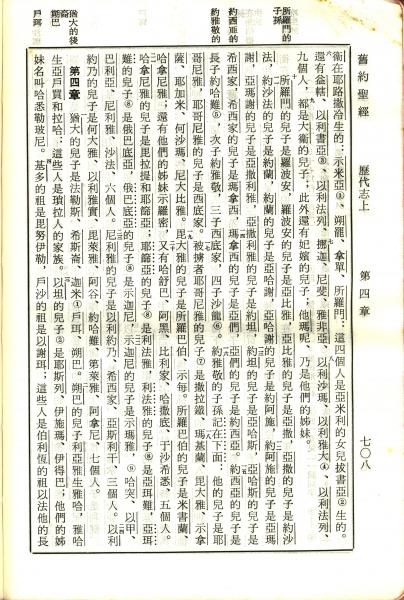 舊約聖經　歷代志上　第四章　七〇八
衞在耶路撒冷生的：示米亞①、朔罷、拿單、所羅門：這四個人是亞米利的女兒拔書亞②生的。
還有益轄、以利書亞③、以利法列、挪迦、尼斐、雅非亞、以利沙瑪、以利雅大④、以利法列、
九個人，都是大衞的兒子；此外還有妃嬪的兒子，他瑪呢，乃是他們的姊妹。
所羅門的子孫
所羅門的兒子是羅波安，羅波安的兒子是亞比雅，亞比雅的兒子是亞撒，亞撒的兒子是約沙
法，約沙法的兒子是約蘭，約蘭的兒子是亞哈謝，亞哈謝的兒子是約阿施，約阿施的兒子是亞瑪
謝，亞瑪謝的兒子是亞撒利雅，亞撒利雅的兒子是約坦，約坦的兒子是亞哈斯，亞哈斯的兒子是
希西家，希西家的兒子是瑪拿西，瑪拿西的兒子是亞們，亞們的兒子是約西亞，約西亞的兒子是
約西亞的
長子約哈難⑤，次子約雅敬，三子西底家，四子沙龍⑥。約雅敬的子孫記在下面：他的兒子是耶
約雅敬的
哥尼雅，耶哥尼雅的兒子是西底家。被擄者耶哥尼雅的兒子⑦是撒拉鐵、瑪基蘭、毘大雅、示拿
薩、耶加米、何沙瑪、尼大比雅。毘大雅的兒子是所羅巴伯、示每。所羅巴伯的兒子是米書蘭、
哈拿尼雅；還有他們的姊妹示羅密，又有哈舒巴、阿黑、比利家、哈撒底、于沙希悉，五個人。
哈拿尼雅的兒子是毘拉提和耶篩亞；耶篩亞的兒子⑧是利法雅，利法雅的兒子⑧是亞珥難，亞珥
難的兒子⑧是俄巴底亞，俄巴底亞的兒子⑧是示迦尼，示迦尼的兒子是示瑪雅，⑨哈突、以甲、
巴利亞、尼利雅、沙法，六個人。尼利雅的兒子是以利約乃、希西家、亞斯利干，三個人。以利
約乃的兒子是何大雅、以利雅實、毘萊雅、阿谷、約哈難、第萊雅、阿拿尼，七個人。
猶大的後裔
第四章　猶大的兒子是法勒斯、希斯崙、迦米①、戶珥、朔巴。朔巴的兒子利亞雅生雅哈，雅哈
朔巴
生亞戶買和拉哈：這些人是瑣拉人的家族。以坦的兒子②是耶斯列、伊施瑪、伊得巴；他們的姊
戶珥
妹名叫哈悉勒玻尼。基多的祖是毘努伊勒，戶沙的祖是以謝珥；這些人是伯利恆的祖以法他的長